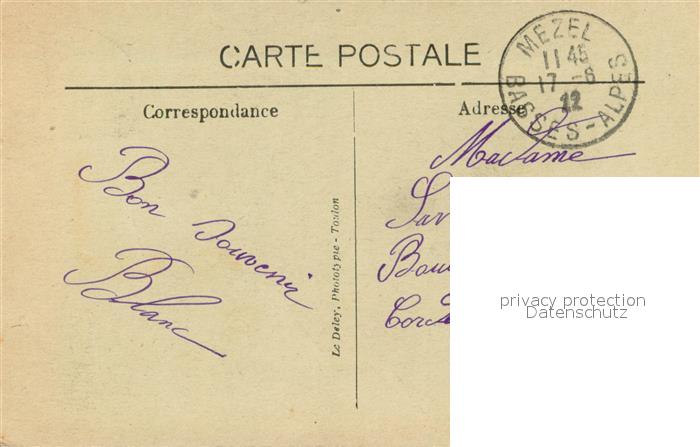 CARTE POSTALE
MEZEL
11 45
17 -8
BASSES-ALPES
Correspondance
Adresse
Bon souvenir
Blanc
Le Deley, Phototypie - Toulon
Madame
privacy protection
Datenschutz